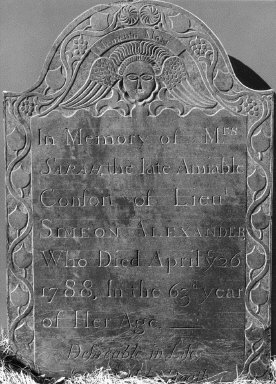 In Memory of Mrs
SARAH, the late Amiable
Confort of Lieut
SIMEON ALEXANDER
Who Died April ye 26
1788, In the 63d year
of Her Age
Defireable in Life